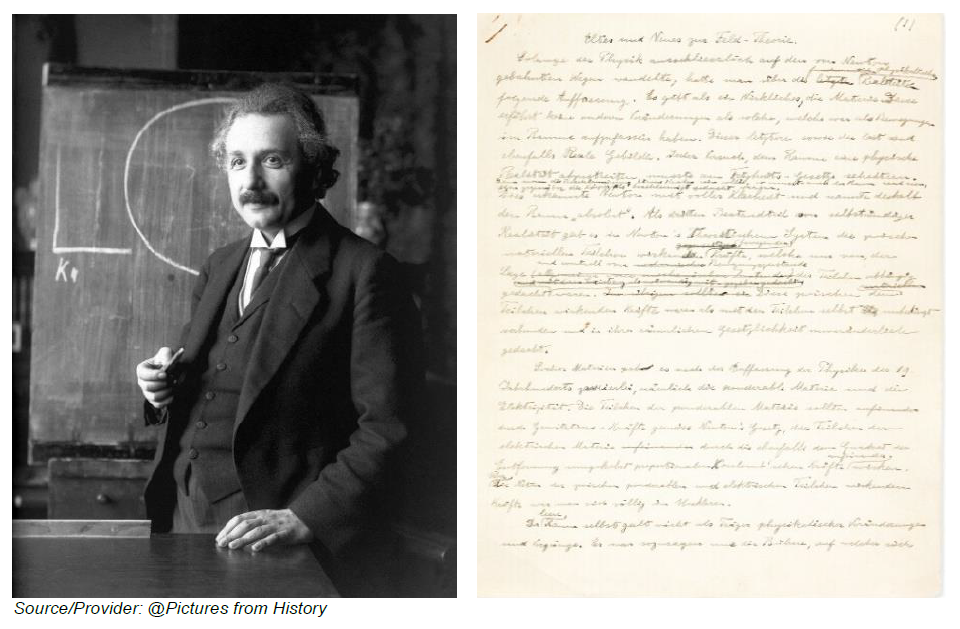 K1
(1)
Altes und Neues zur Feld-Theorie.
Solange die Physik ausschliesslich auf den von Newton
gebahnten Wegen wandelte, hatte man über die letzten
folgende Auffassung. Es gibt als ein Wirkliches, die Materie. Diese
erfährt keine anderen Veränderungen als solche, welche wir als Bewegungen
im Raume aufzufassen haben. Dieser letztere
ebenfalls Reale Gebilde. Jeder Versuch, dem Raume eine physische
Realität abzustreiten
Dies erkannte Newton mit voller Klarheit und nannte deshalb
den Raum „absolut". Als dritten Bestandteil von selbständiger
Realität gab es in Newton's System die zwischen
materiellen Teilchen Kräfte, welche nur von der
Lage der Teilchen abhängig
gedacht waren. Diese zwischen den
Teilchen wirkenden Kräfte waren als mit den Teilchen selbst unbedingt
verbunden und in ihrer räumlichen Gesetzlichkeit unveränderlich
gedacht.
Materien gab es nach der Auffassung der Physiker des 19.
Jahrhunderts zweierlei, nämlich die ponderable Materie und die
Elektrizität. Die Teilchen der ponderablen Materie sollten aufeinander
durch Gravitations-Kräfte gemäss Newton's Gesetz, die Teilchen der
elektrischen Materie durch die ebenfalls dem Quadrat der
Entfernung umgekehrt proportionalen Coulomb'schen Kräfte
Natur der zwischen ponderablen und elektrischen Teilchen wirkenden
Kräfte war man sich völlig im Unklaren.
Der leere Raum selbst galt nicht als Träger physikalischer Veränderungen
und Vorgänge. Er war sozusagen nur die Bühne, auf welcher sich
Source/Provider: @Pictures from History